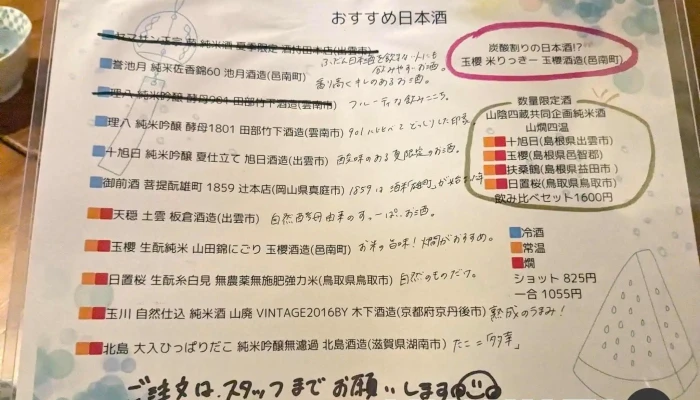 おすすめ日本酒
ヤマサン正宗 純米酒 夏季限定 酒持田本店(出雲市)
誉池月 純米佐香錦60 池月酒造(邑南町)
ふだん日本酒を飲まない人にも
飲みやすいお酒。
香り高くキレのあるお酒。
理八 純米吟醸 酵母901 田部竹下酒造(雲南市)
フルーティな飲みごこち。
理八 純米吟醸 酵母1801 田部竹下酒造(雲南市)
901に比べてどっしりした印象。
十旭日 純米吟醸 夏仕立て 旭日酒造(出雲市)
酸味のある夏限定のお酒。
御前酒 菩提酛雄町 1859 辻本店(岡山県真庭市)
1859は酒米「雄町」が始まった年
天穏 土雲 板倉酒造(出雲市)
自然酵母由来のすっぱいお酒。
玉櫻 生酛純米 山田錦にごり 玉櫻酒造(邑南町)
お米の旨味!燗がおすすめ。
日置桜 生酛糸白見 無農薬無施肥強力米(鳥取県鳥取市)
自然のものだけ。
玉川 自然仕込 純米酒 山廃 VINTAGE2016BY 木下酒造(京都府京丹後市)
熟成のうまみ!
北島 大入ひっぱりだこ 純米吟醸無濾過 北島酒造(滋賀県湖南市)
たこ=「多幸」
ご注文は、スタッフまでお願いします
炭酸割りの日本酒!?
玉櫻 米りっきー 玉櫻酒造(邑南町)
数量限定酒
山陰四蔵共同企画純米酒
山燗四温
十旭日(島根県出雲市)
玉櫻(島根県邑智郡)
扶桑鶴(島根県益田市)
日置桜(鳥取県鳥取市)
飲み比べセット1600円
冷酒
常温
燗
ショット 825円
一合 1055円